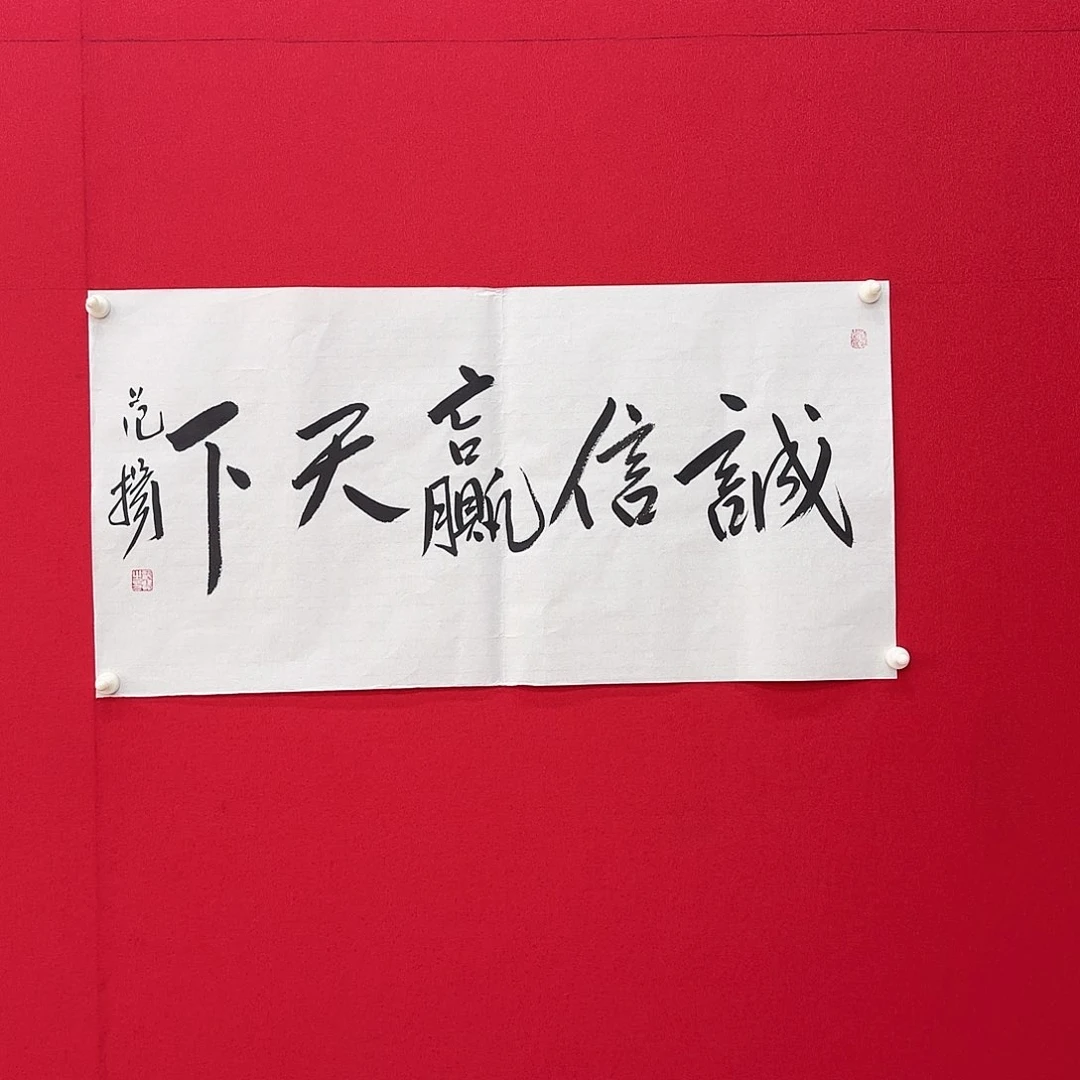 誠信贏天下
范揚